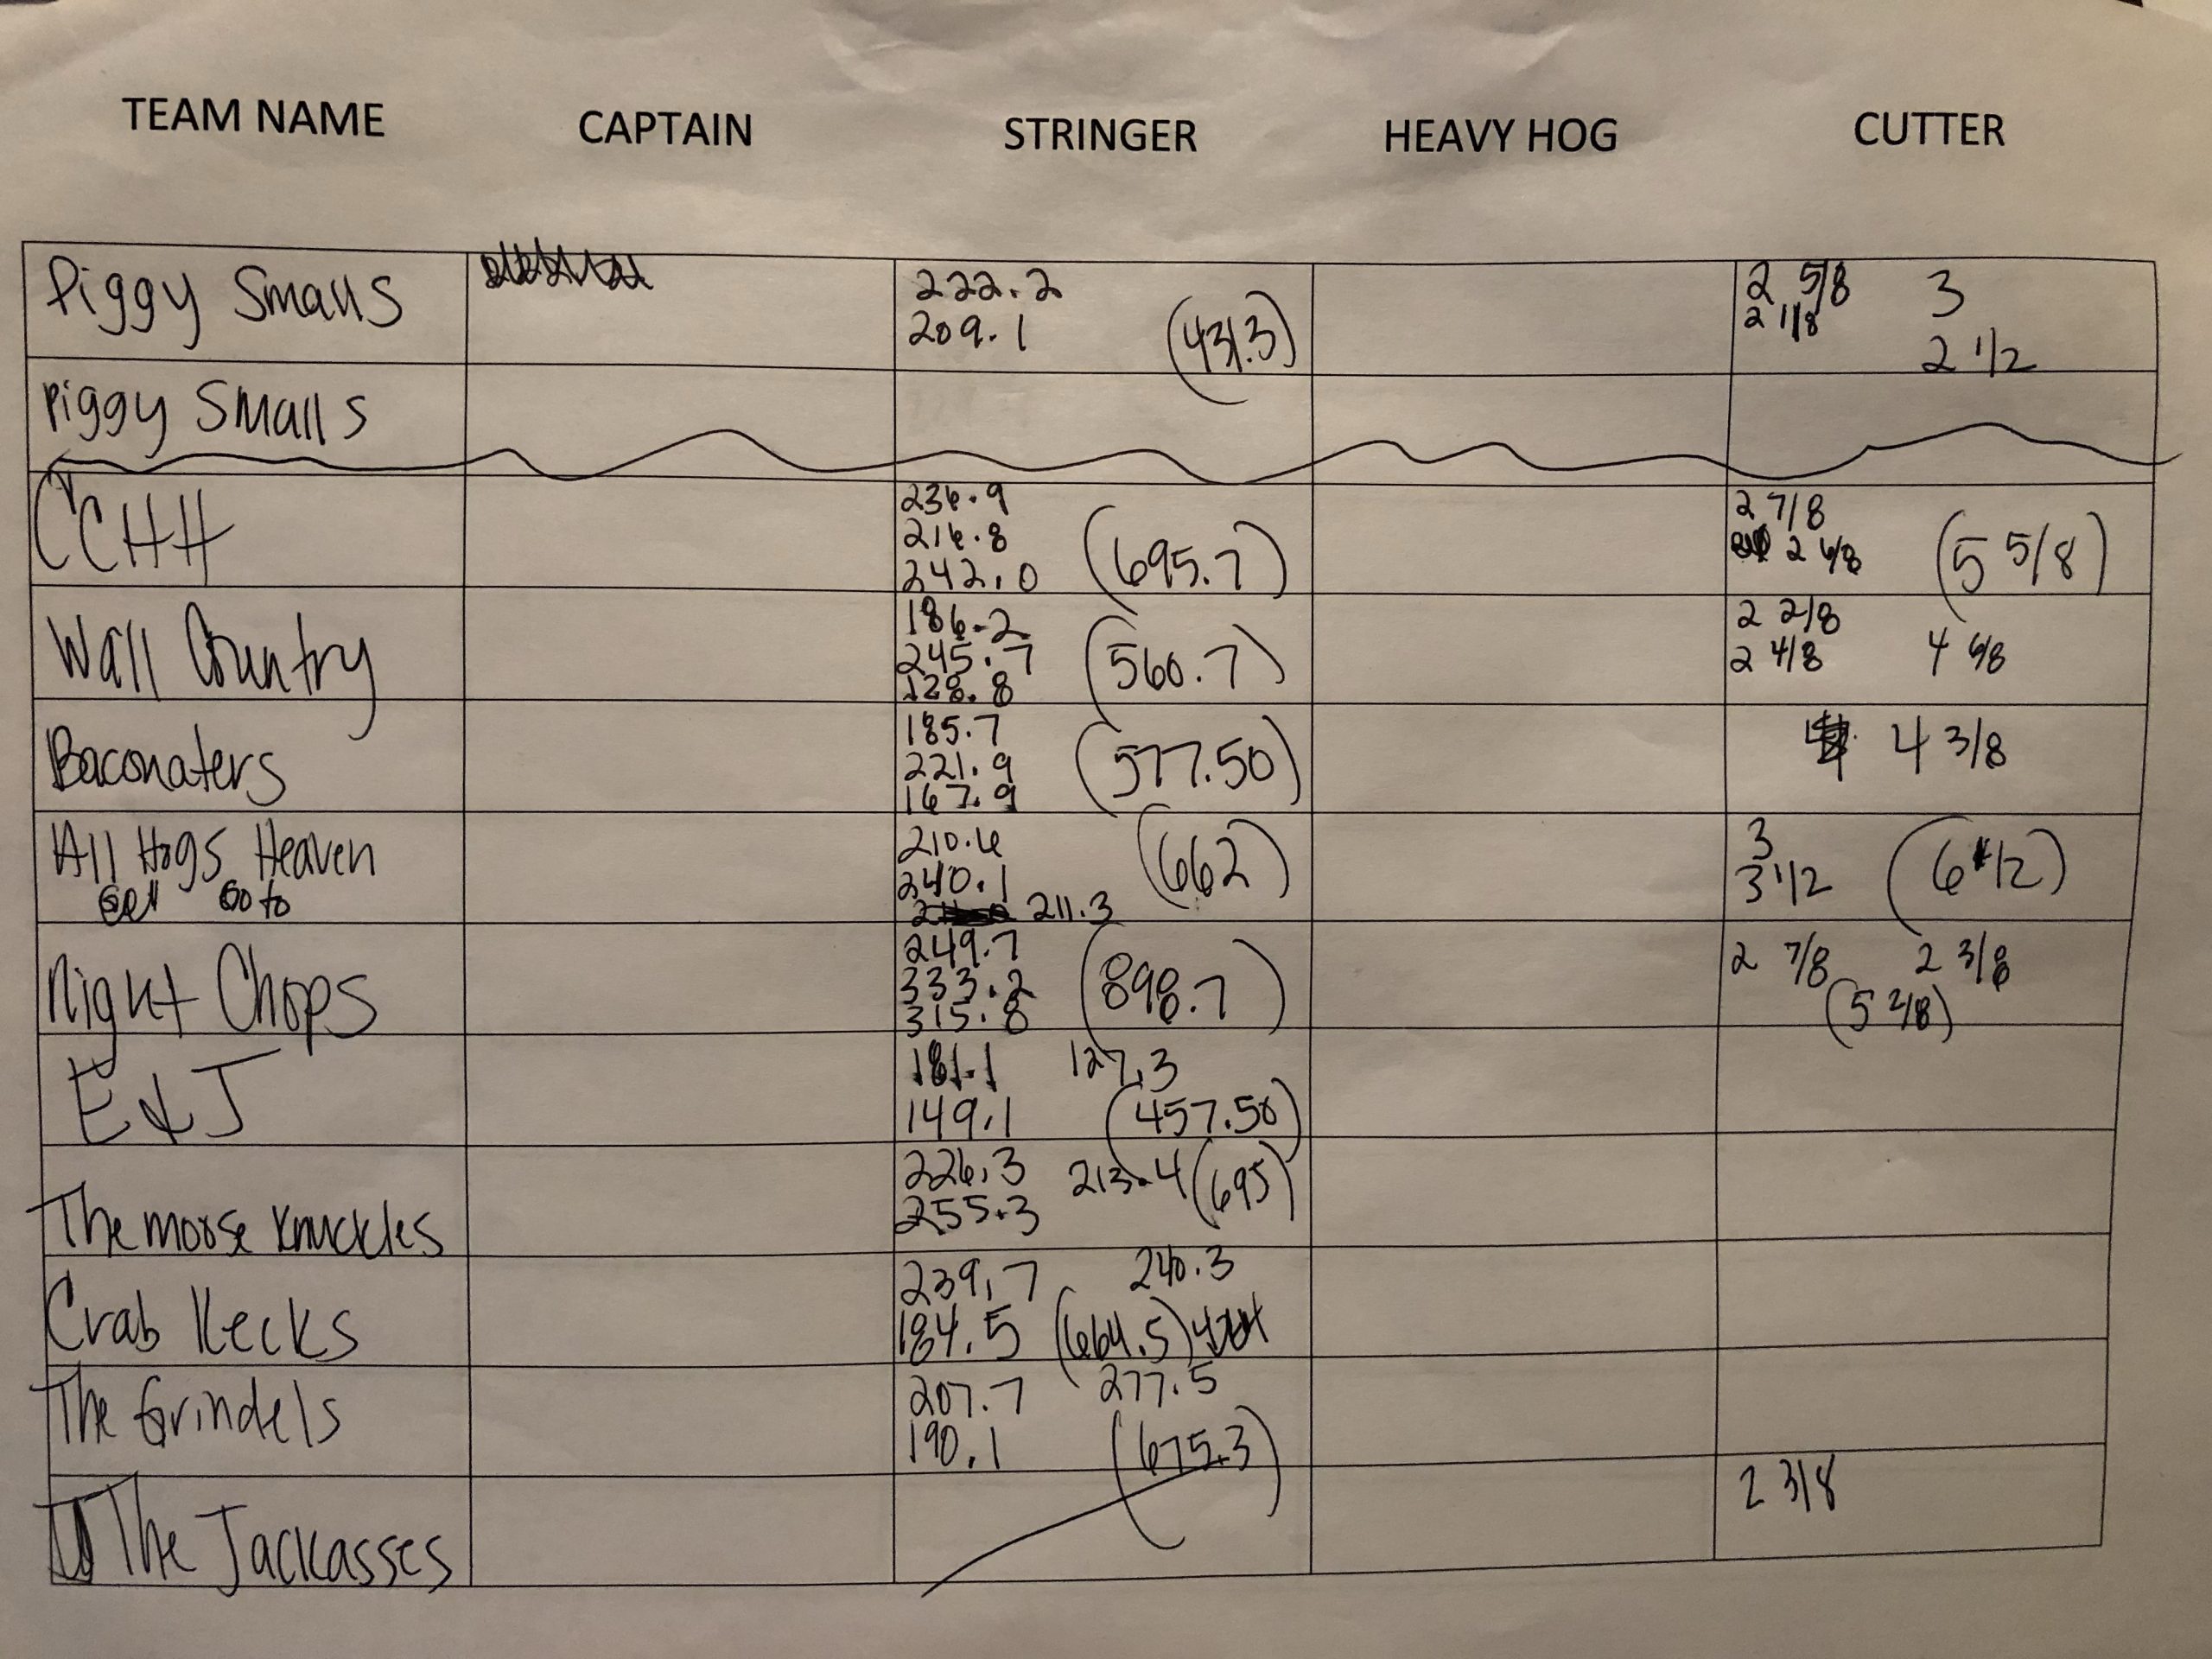 TEAM NAME CAPTAIN STRINGER HEAVY HOG CUTTER
Piggy Smalls 222.2 2 5/8 3
209.1 (431.3) 2 1/8 2 1/2
Piggy Smalls
CCHH 236.9 2 7/8
216.8 (695.7) 2 6/8 (5 5/8)
242.0
Wall Country 186.2 2 2/8
245.7 (560.7) 2 4/8 4 6/8
128.8
Baconaters 185.7
221.9 (577.50) 4 3/8
167.9
All Hogs Heaven 210.6 (662) 3
Go to 240.1 3 1/2 (6 1/2)
211.3
Night Chops 249.7 2 7/8 2 3/8
333.2 (898.7) (5 2/8)
315.8
E & J 181.1 127.3
149.1 (457.50)
The moose knuckles 226.3 213.4 (695)
255.3
Crab Necks 239.7 240.3
184.5 (664.5)
The Grindels 207.7 277.5
190.1 (675.3)
The Jackasses 2 3/8